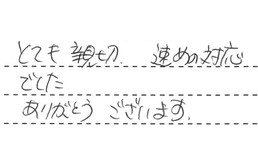 とても親切、速めの対応
でした
ありがとうございます.